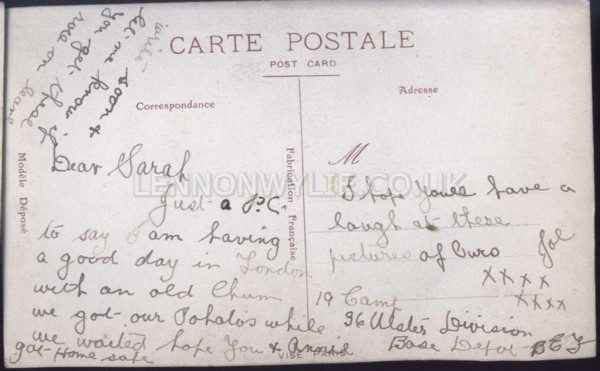 CARTE POSTALE
POST CARD
Correspondance
Adresse
Modèle Déposé
Fabrication Française
VISÉ PARIS
LENNONWYLIE.CO.UK
write soon &
let me know if
you get these
Dear Sarah
Just a P.C.
to say I am having
a good day in London
with an old Chum
we got our Pohatos while
we waited hope You & Annie
got Home safe
M
I hope youll have a
laugh at these
pictures of Ours
Joe
xxxx
xxxx
19 Camp
36 Ulster Division
Base Depot BEF